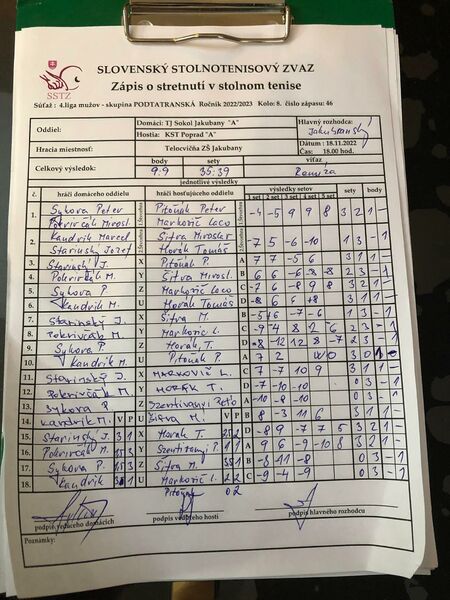 SSTZ
SLOVENSKÝ STOLNOTENISOVÝ ZVAZ
Zápis o stretnutí v stolnom tenise
Súťaž : 4.liga mužov - skupina PODTATRANSKÁ Ročník 2022/2023 Kolo: 8. číslo zápasu: 46
Oddiel: Domáci: TJ Sokol Jakubany "A" Hlavný rozhodca:
Hostia: KST Poprad "A" Jakubanský
Hracia miestnosť: Telocvičňa ZŠ Jakubany Dátum : 18.11.2022
Čas: 18.00 hod.
Celkový výsledok: body sety víťaz
9:9 35:39 Remíza
jednotlivé výsledky
č. hráči domáceho oddielu hráči hosťujúceho oddielu výsledky setov sety body
1 set 2 set 3 set 4 set 5 set
1. Sykora Peter Pitoňák Peter -4 -5 9 9 8 3 2 1 -
Pokrivčák Mirosl. Markovič Laco
2. Kandrik Marcel Šifra Miroslav -7 5 -6 -10 1 3 - 1
Starinský Jozef Horák Tomáš
3. Starinský J. X Pitoňák P. A 7 7 -5 6 3 1 1 -
4. Pokrivčák M. Y Šifra Mirosl. B 6 6 -6 -8 -8 2 3 - 1
5. Sykora P. Z Markovič Laco C -7 6 -8 9 8 3 2 1 -
6. Kandrik M. U Horák Tomáš D
7. Starinský J. X Šifra M. B
8. Pokrivčák M. Y Markovič L. C -9 4 8 12 6
9. Sykora P. Z Horák T. D -8 -12 12 8 -7 2 3 - 1
10. Kandrik M. U Pitoňák P. A 7 2
11. Starinský J. X MARKOVIČ L. C -7 -7 10 9
12. Pokrivčák M. Y HORÁK T. D -7 -10 -10 0 3 - 1
13. Sykora P. Z A -10 -8 -10 0 3 - 1
14. KANDRIK M. V P U Šifra M. V P B 8 -3 11 6 3 1 1 -
15. Starinský J. 3 1 X Horák T. 2 2 D -8 9 -7 7 5 3 2 1 -
16. Pokrivčák M. 1 3 Y A 9 6 -9 -10 8 3 2 1 -
17. Sykora P. Z Šifra M. B -8 -11 -8 0 3 - 1
18. Kandrik U Markovič L. 2 2 C -9 -4 -9 0 3 - 1
Pitoňák 0 2
podpis vedúceho domácich podpis vedúceho hostí podpis hlavného rozhodcu
Poznámky: